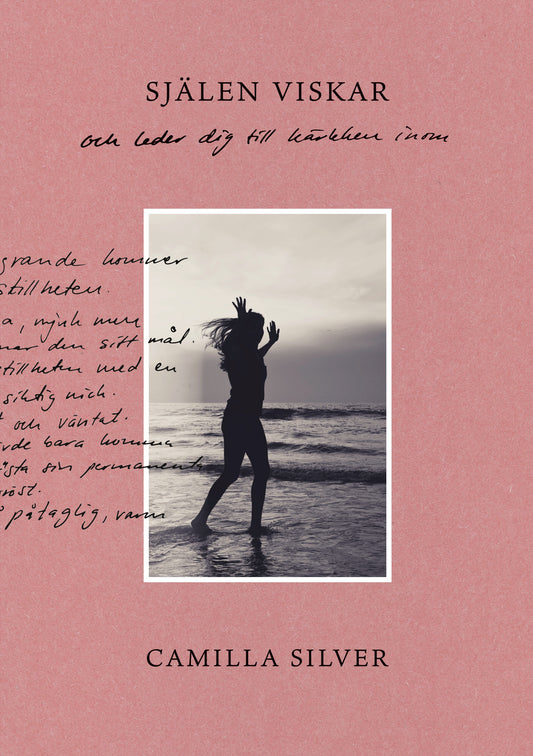 SJÄLEN VISKAR
och leder dig till kärleken inom
grande kommer
stillheten.
a, mjuk men
nar den sitt mål.
stillheten med en
siktig nick.
t och väntat.
rde bara komma
ästa sin permanenta
röst.
påtaglig, varm
CAMILLA SILVER